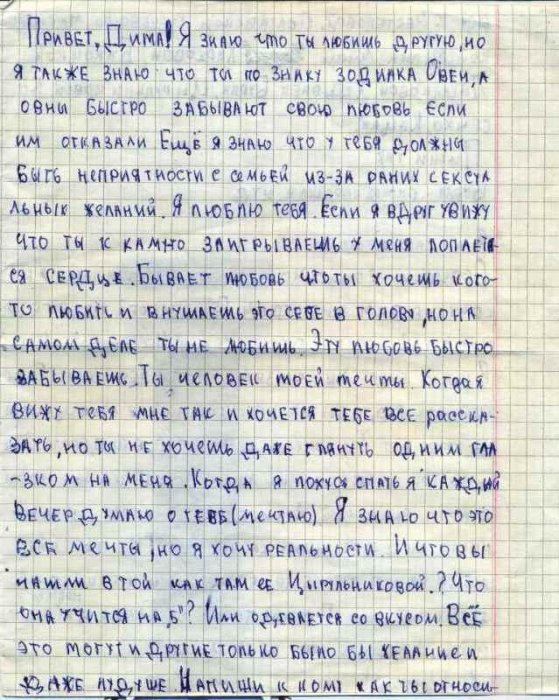 Привет, Дима! Я знаю что ты любишь другую, но
я также знаю что ты по знаку зодиака Овен, а
овны быстро забывают свою любовь если
им отказали Ещё я знаю что у тебя должны
быть неприятности с семьей из-за раних сексуа
льных желаний. Я люблю тебя. Если я вдруг увижу
что ты к камню заигрываешь у меня лопает-
ся сердце. Бывает любовь что ты хочешь кого-
то любить и внушаешь это себе в голову, но на
самом деле ты не любишь. Эту любовь быстро
забываешь. Ты человек моей мечты. Когда я
вижу тебя мне так и хочется тебе все расска-
зать, но ты не хочешь даже глянуть одним гла
-зком на меня. Когда я ложусь спать я каждий
вечер думаю о тебе (мечтаю) Я знаю что это
все мечты, но я хочу реальности. И что вы
нашли в той как там ее Цырульниковой.? Что
она учится на „5"? Или одевается со вкусом. Всё
это могут и другие только было бы желание и
даже лудьше. Напиши к кому как ты относи-